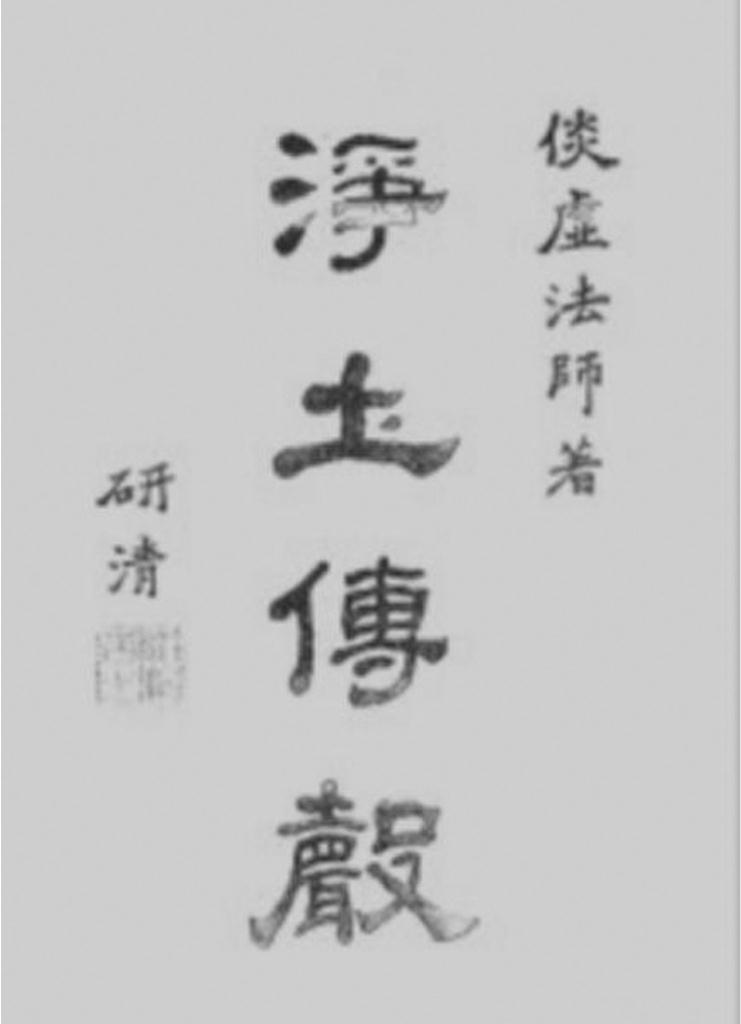 倓虛法師著
淨土傳聲
研清